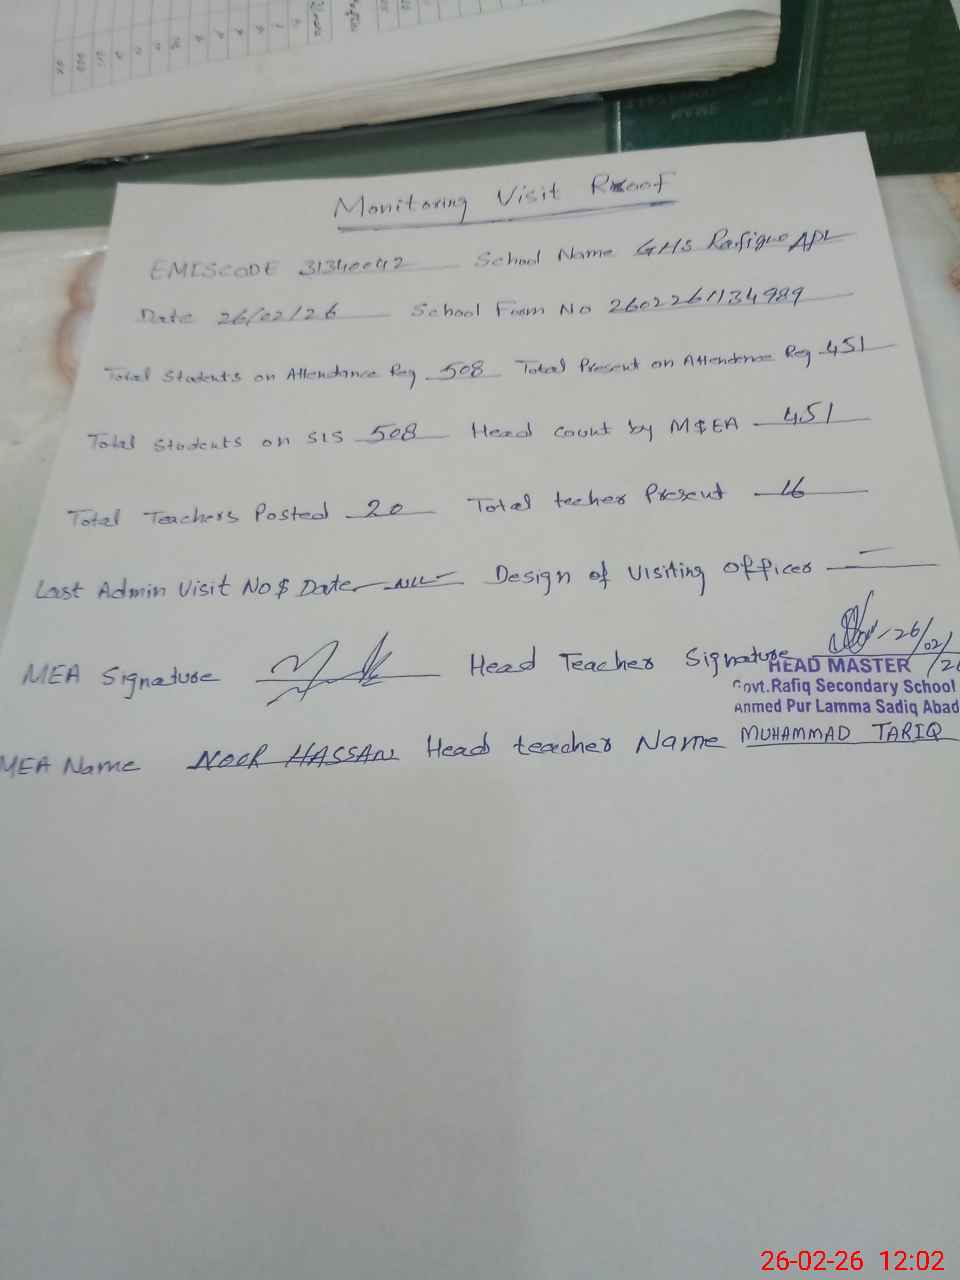 Monitoring Visit Proof
EMISCODE 31340042 School Name GHS Rafique APL
Date 26/02/26 School Form No 2602261134989
Total Students on Attendance Reg 508 Total Present on Attendence Reg 451
Total Students on SIS 508 Head count by M$EA 451
Total Teachers Posted 20 Total techer Present 16
Last Admin Visit No$ Date NIL Design of Visiting Officer
MEA Signature Head Teacher Signature 26/02/26
HEAD MASTER
Govt.Rafiq Secondary School
Ahmed Pur Lamma Sadiq Abad
MEA Name NOOR HASSAN Head teacher Name MUHAMMAD TARIQ
26-02-26 12:02